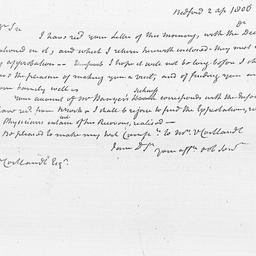 Bedford 2 ap 1806
Dr Sir
I have recd your Letter of this morning, with the Deed
mentioned in it; and which I return herewith enclosed. they meet
my approbation -- I hope it will not be long before I shall
have the pleasure of making you a visit, and of finding you and
your family well in
Your account of Mr corresponds with the
have recd from & I shall rejoice to find the Expectations, wh
Physicians entertain of his Recovery, realised --
Be pleased to make my best Complts to Mrs V Cortlandt
I am Dr Sr
Your affte & ob servt
Cortlandt Esqr.